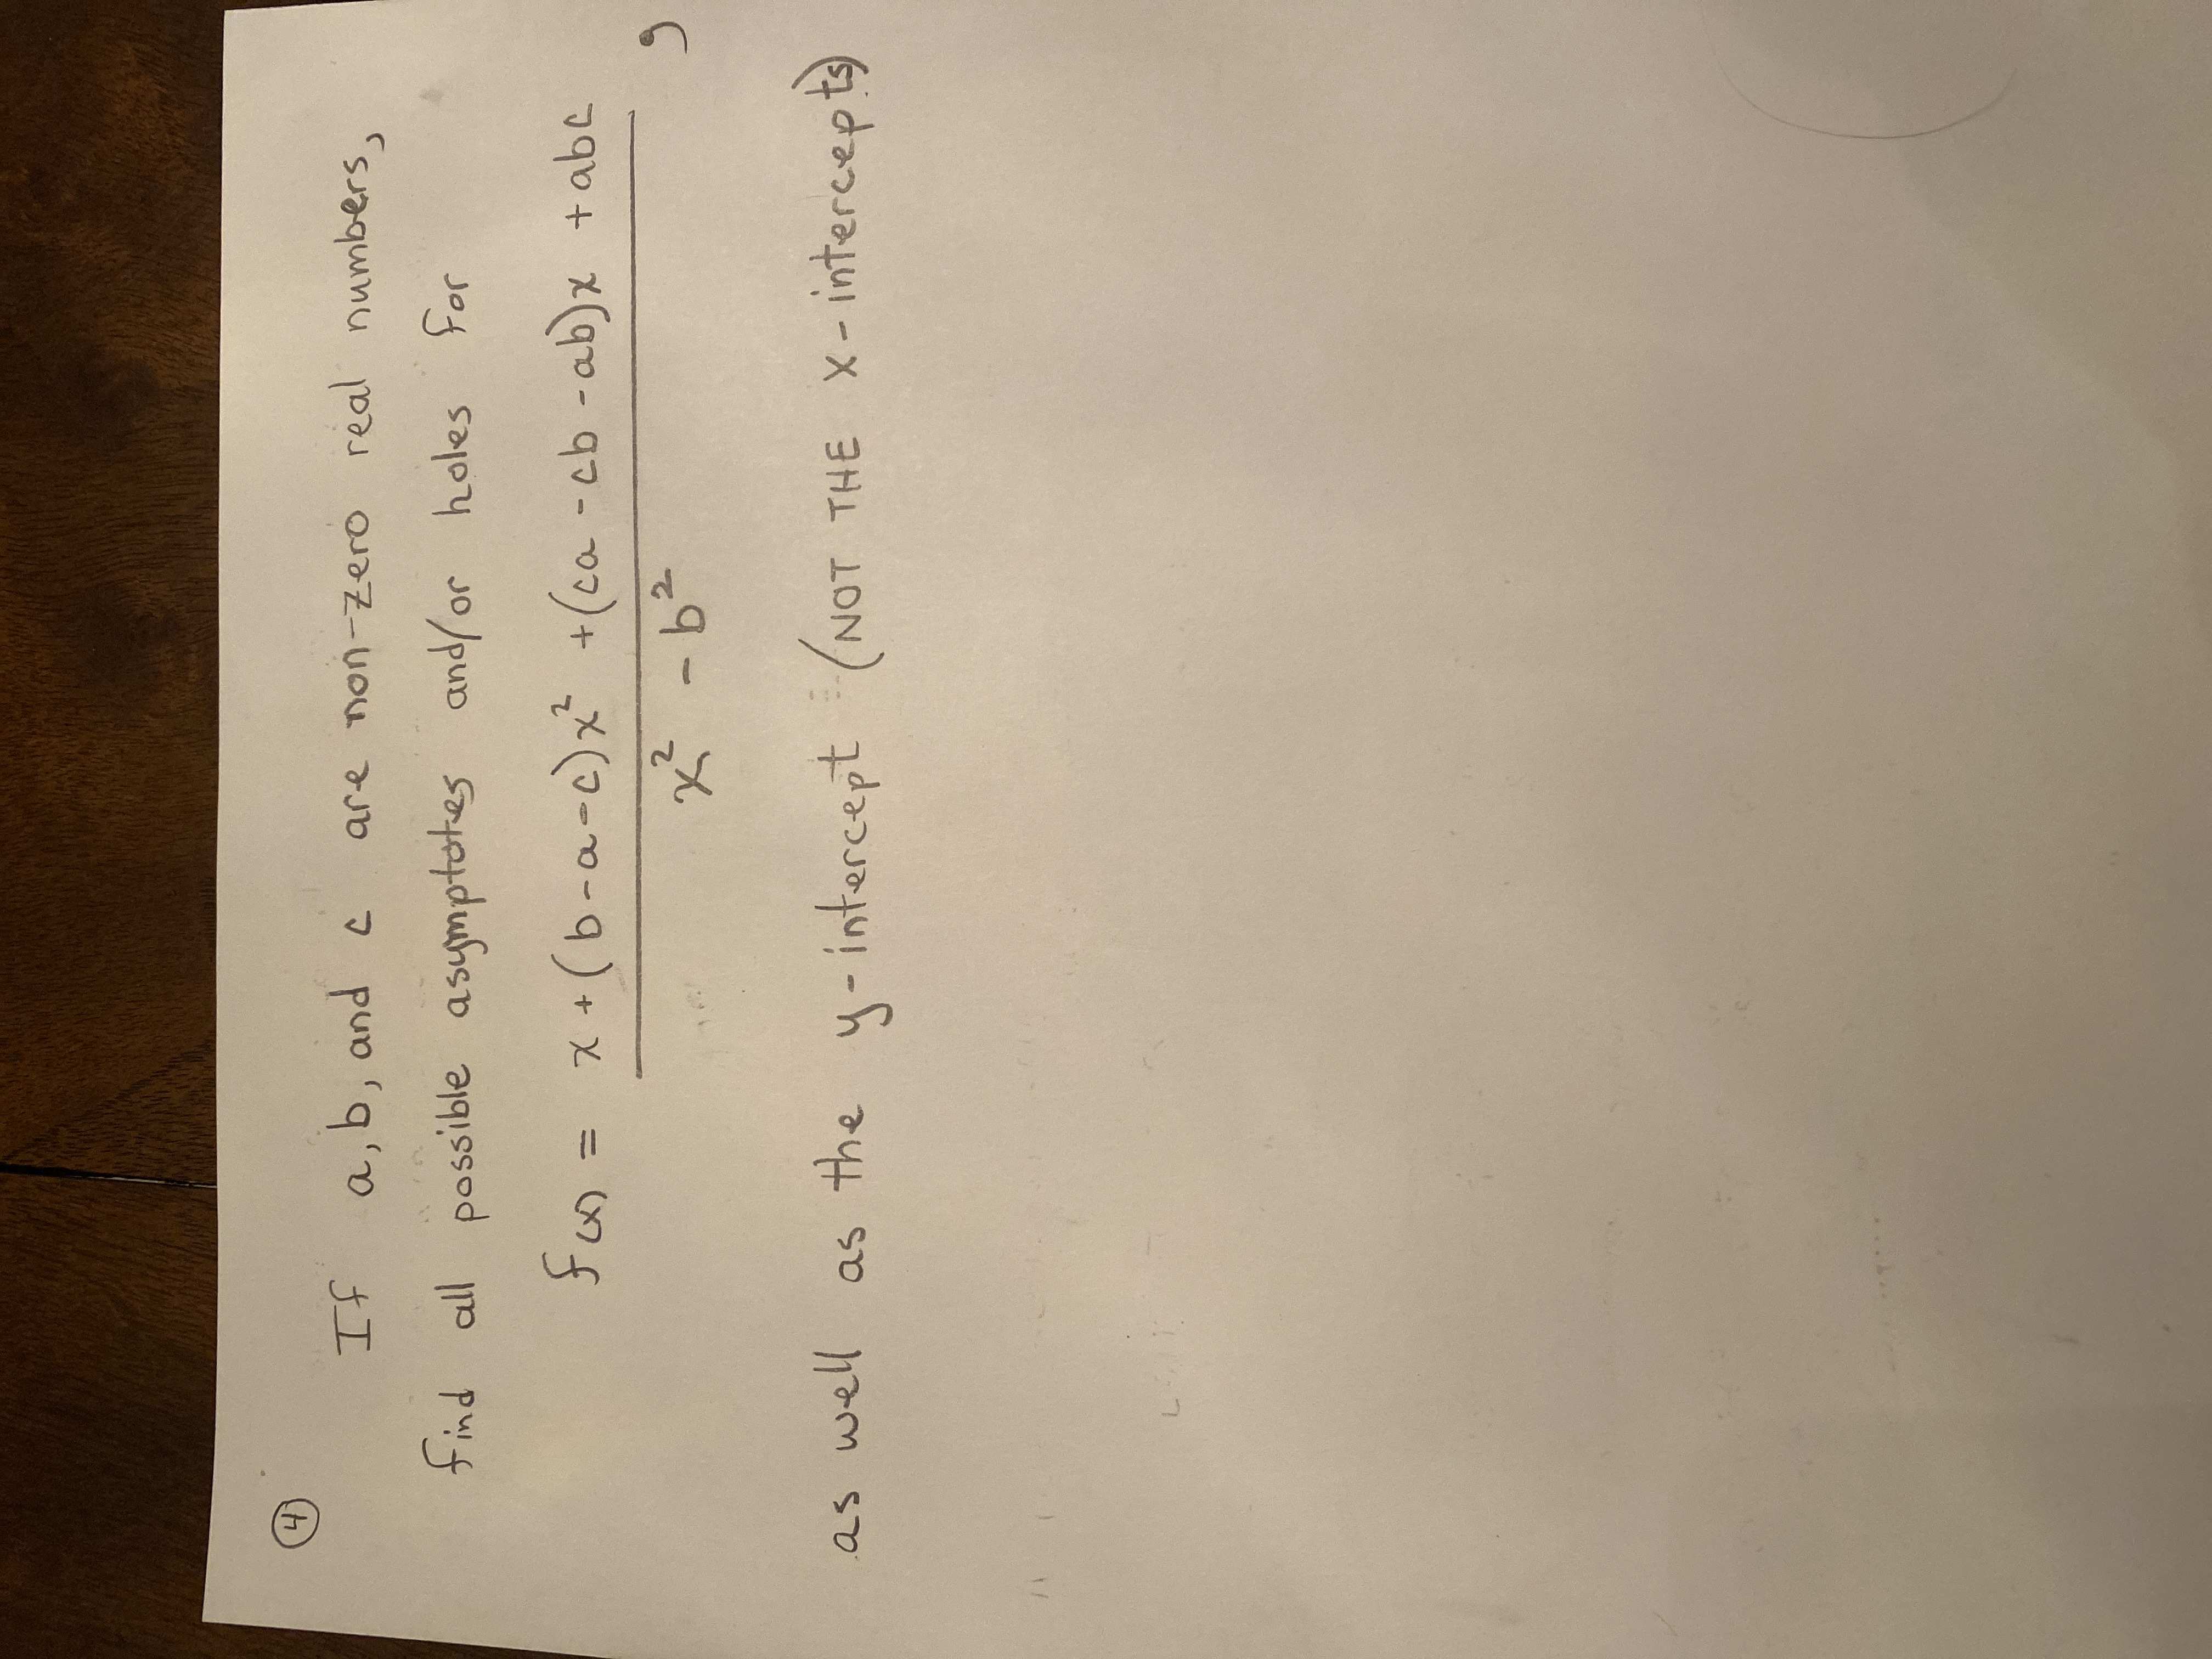 ④
If a, b, and c are non-zero real numbers,
find all possible asymptotes and/or holes for
f(x) = x + (b - a - c)x² + (ca - cb - ab)x + abc
x² - b² ,
as well as the y-intercept (NOT THE x-intercepts)